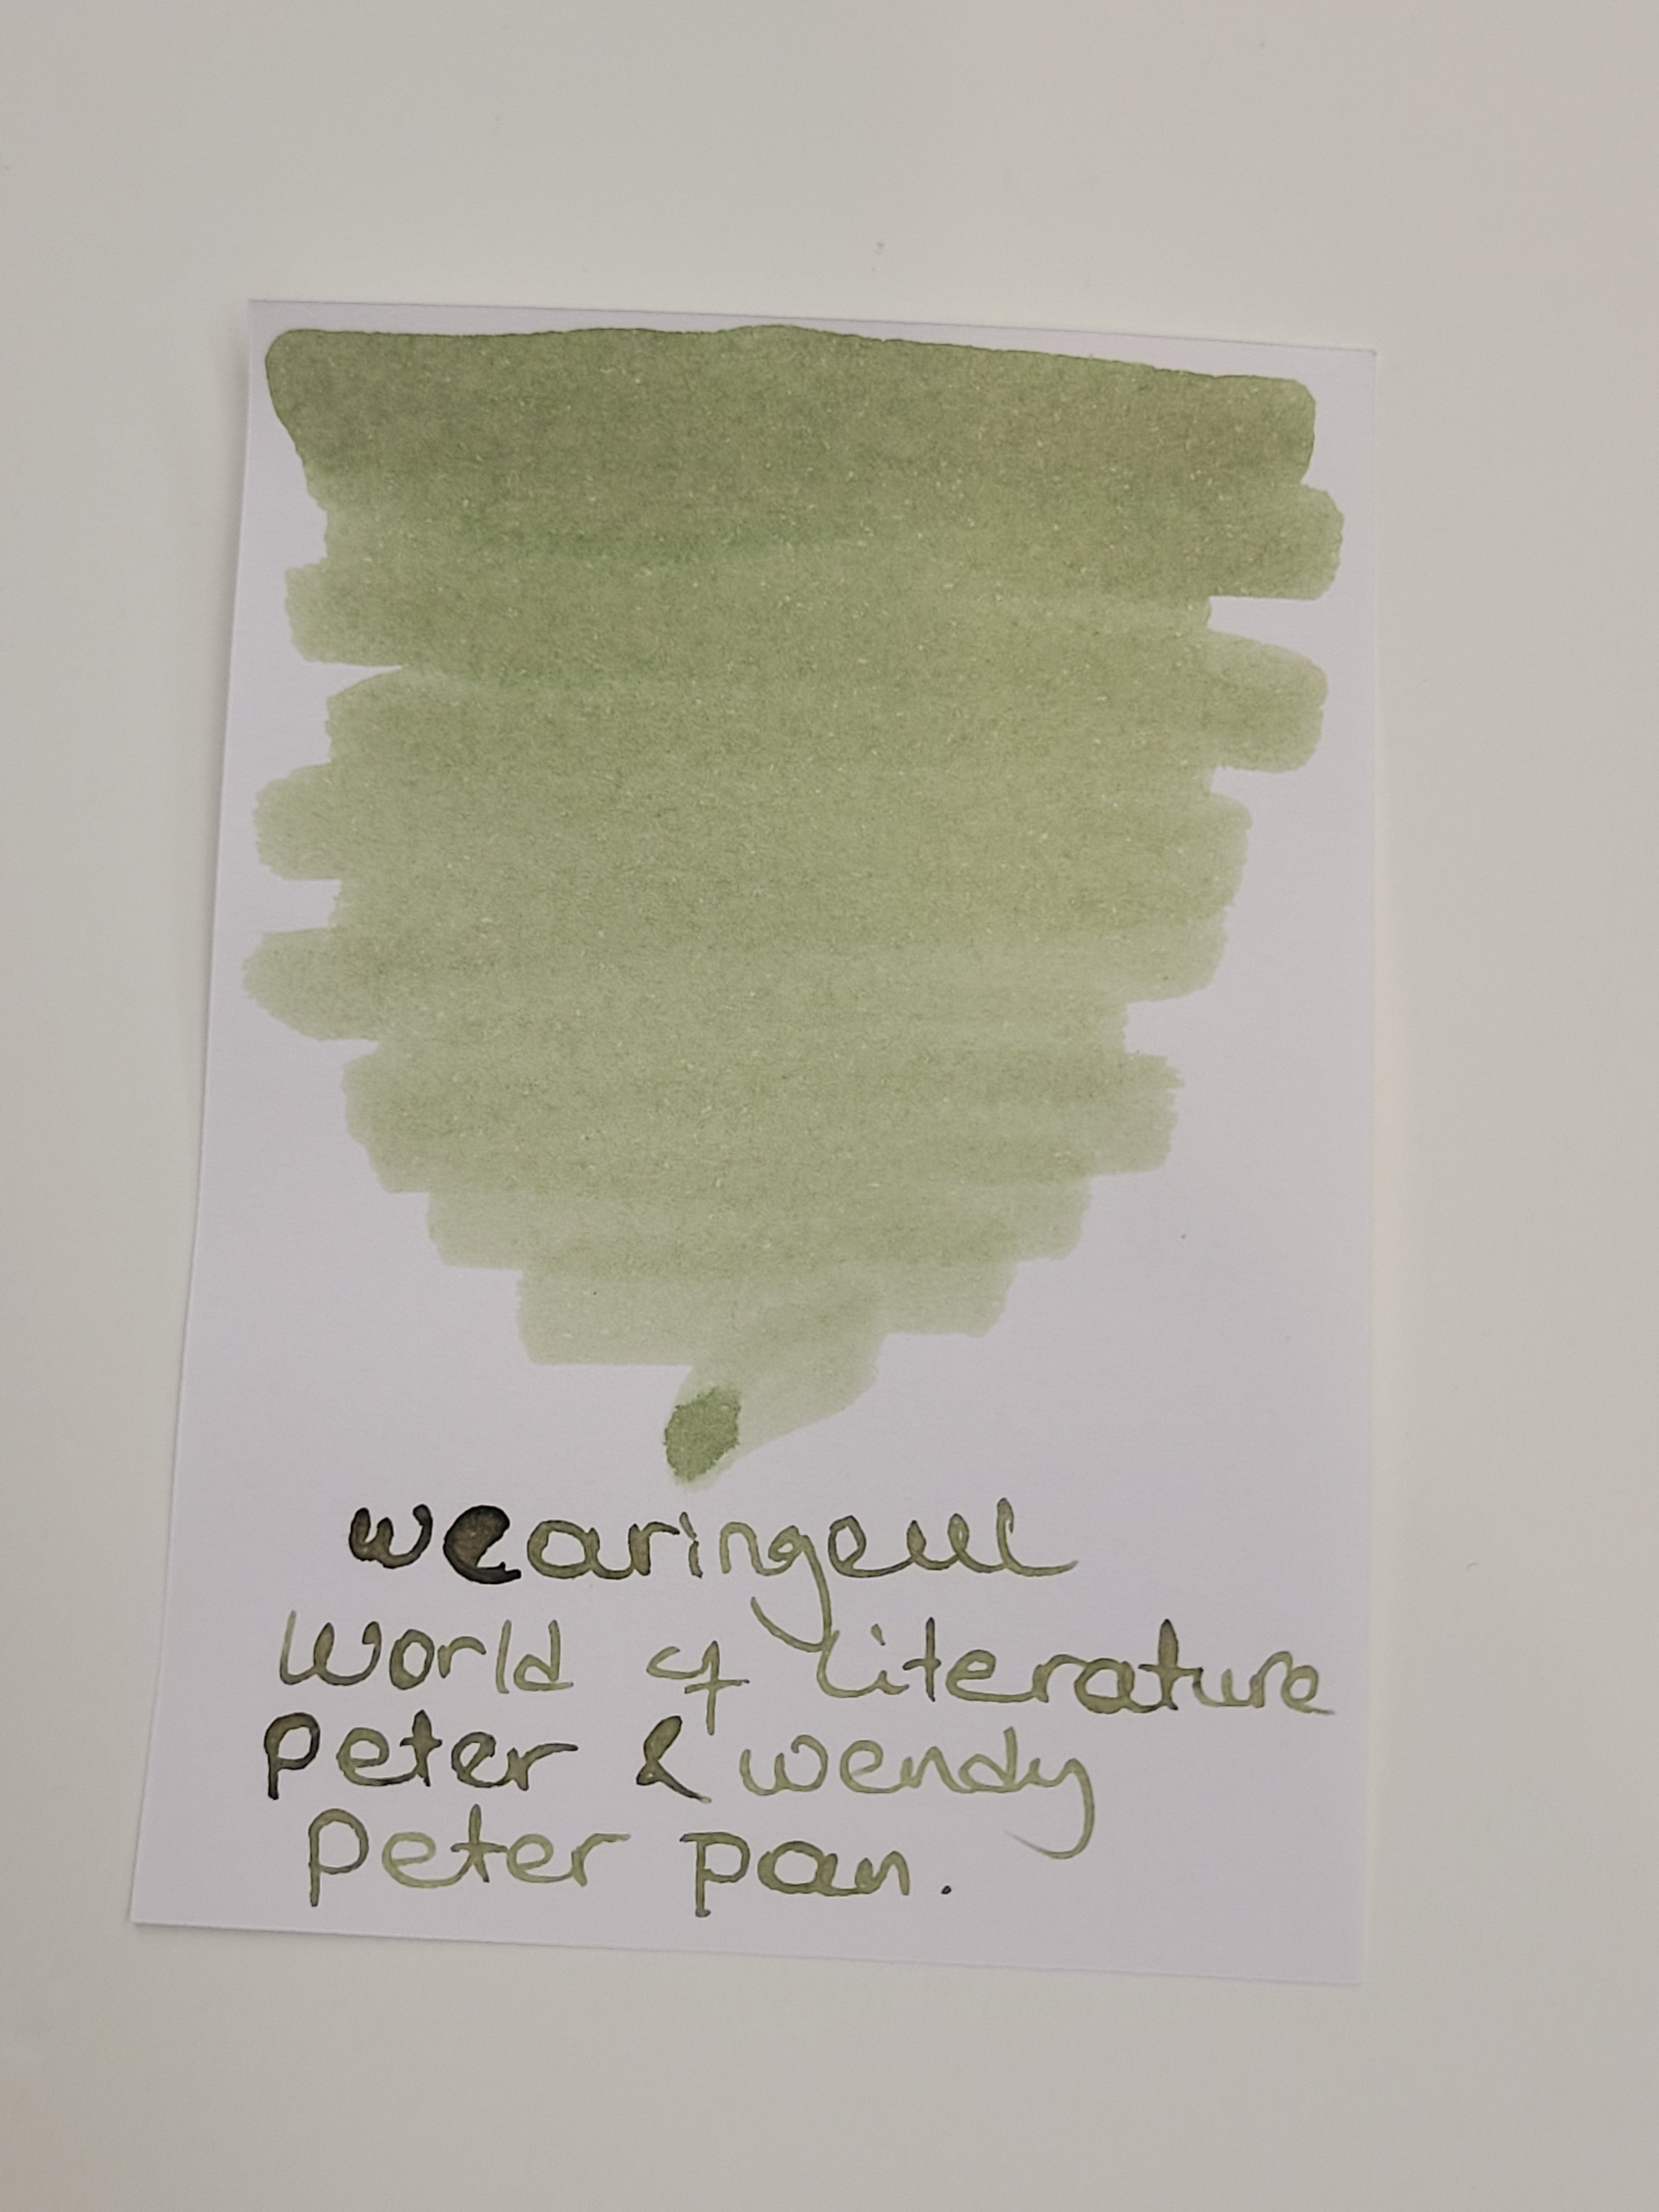 wearingeul
World of Literature
Peter & wendy
Peter pan.